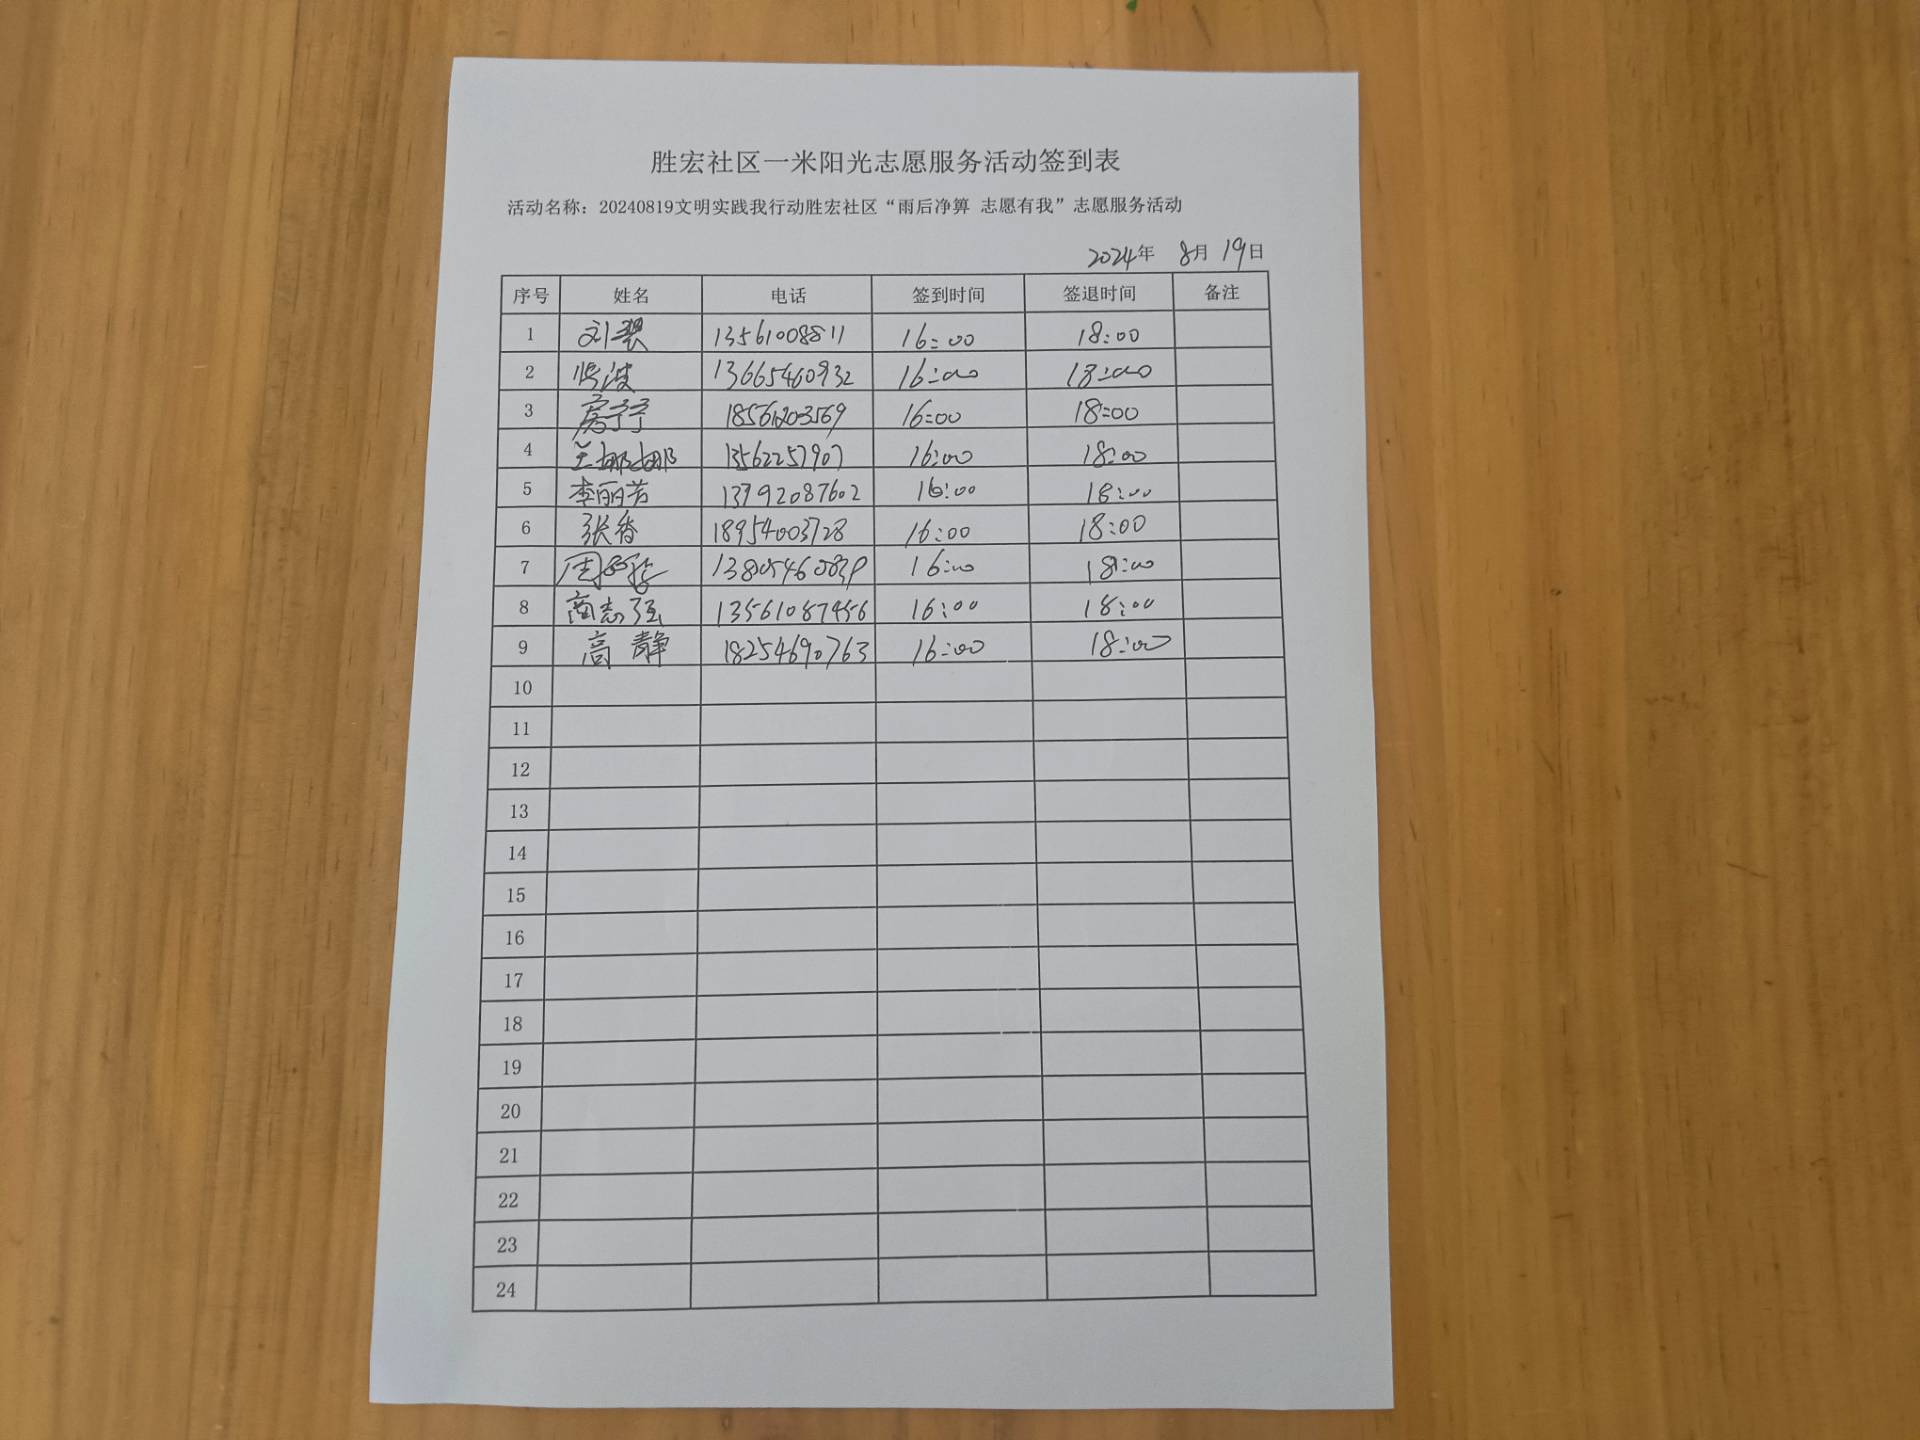 胜宏社区一米阳光志愿服务活动签到表
活动名称：20240819文明实践我行动胜宏社区“雨后净箅 志愿有我”志愿服务活动
2024年 8月 19日
序号 姓名 电话 签到时间 签退时间 备注
1 刘翠 13561008811 16:00 18:00
2 张波 13665460932 16:00 18:00
3 房宁宁 18561203569 16:00 18:00
4 兰娜娜 13562257907 16:00 18:00
5 李丽芳 13792087602 16:00 18:00
6 张香 18954003728 16:00 18:00
7 周 13805460839 16:00 18:00
8 商志强 13561087456 16:00 18:00
9 高静 18254690763 16:00 18:00
10
11
12
13
14
15
16
17
18
19
20
21
22
23
24